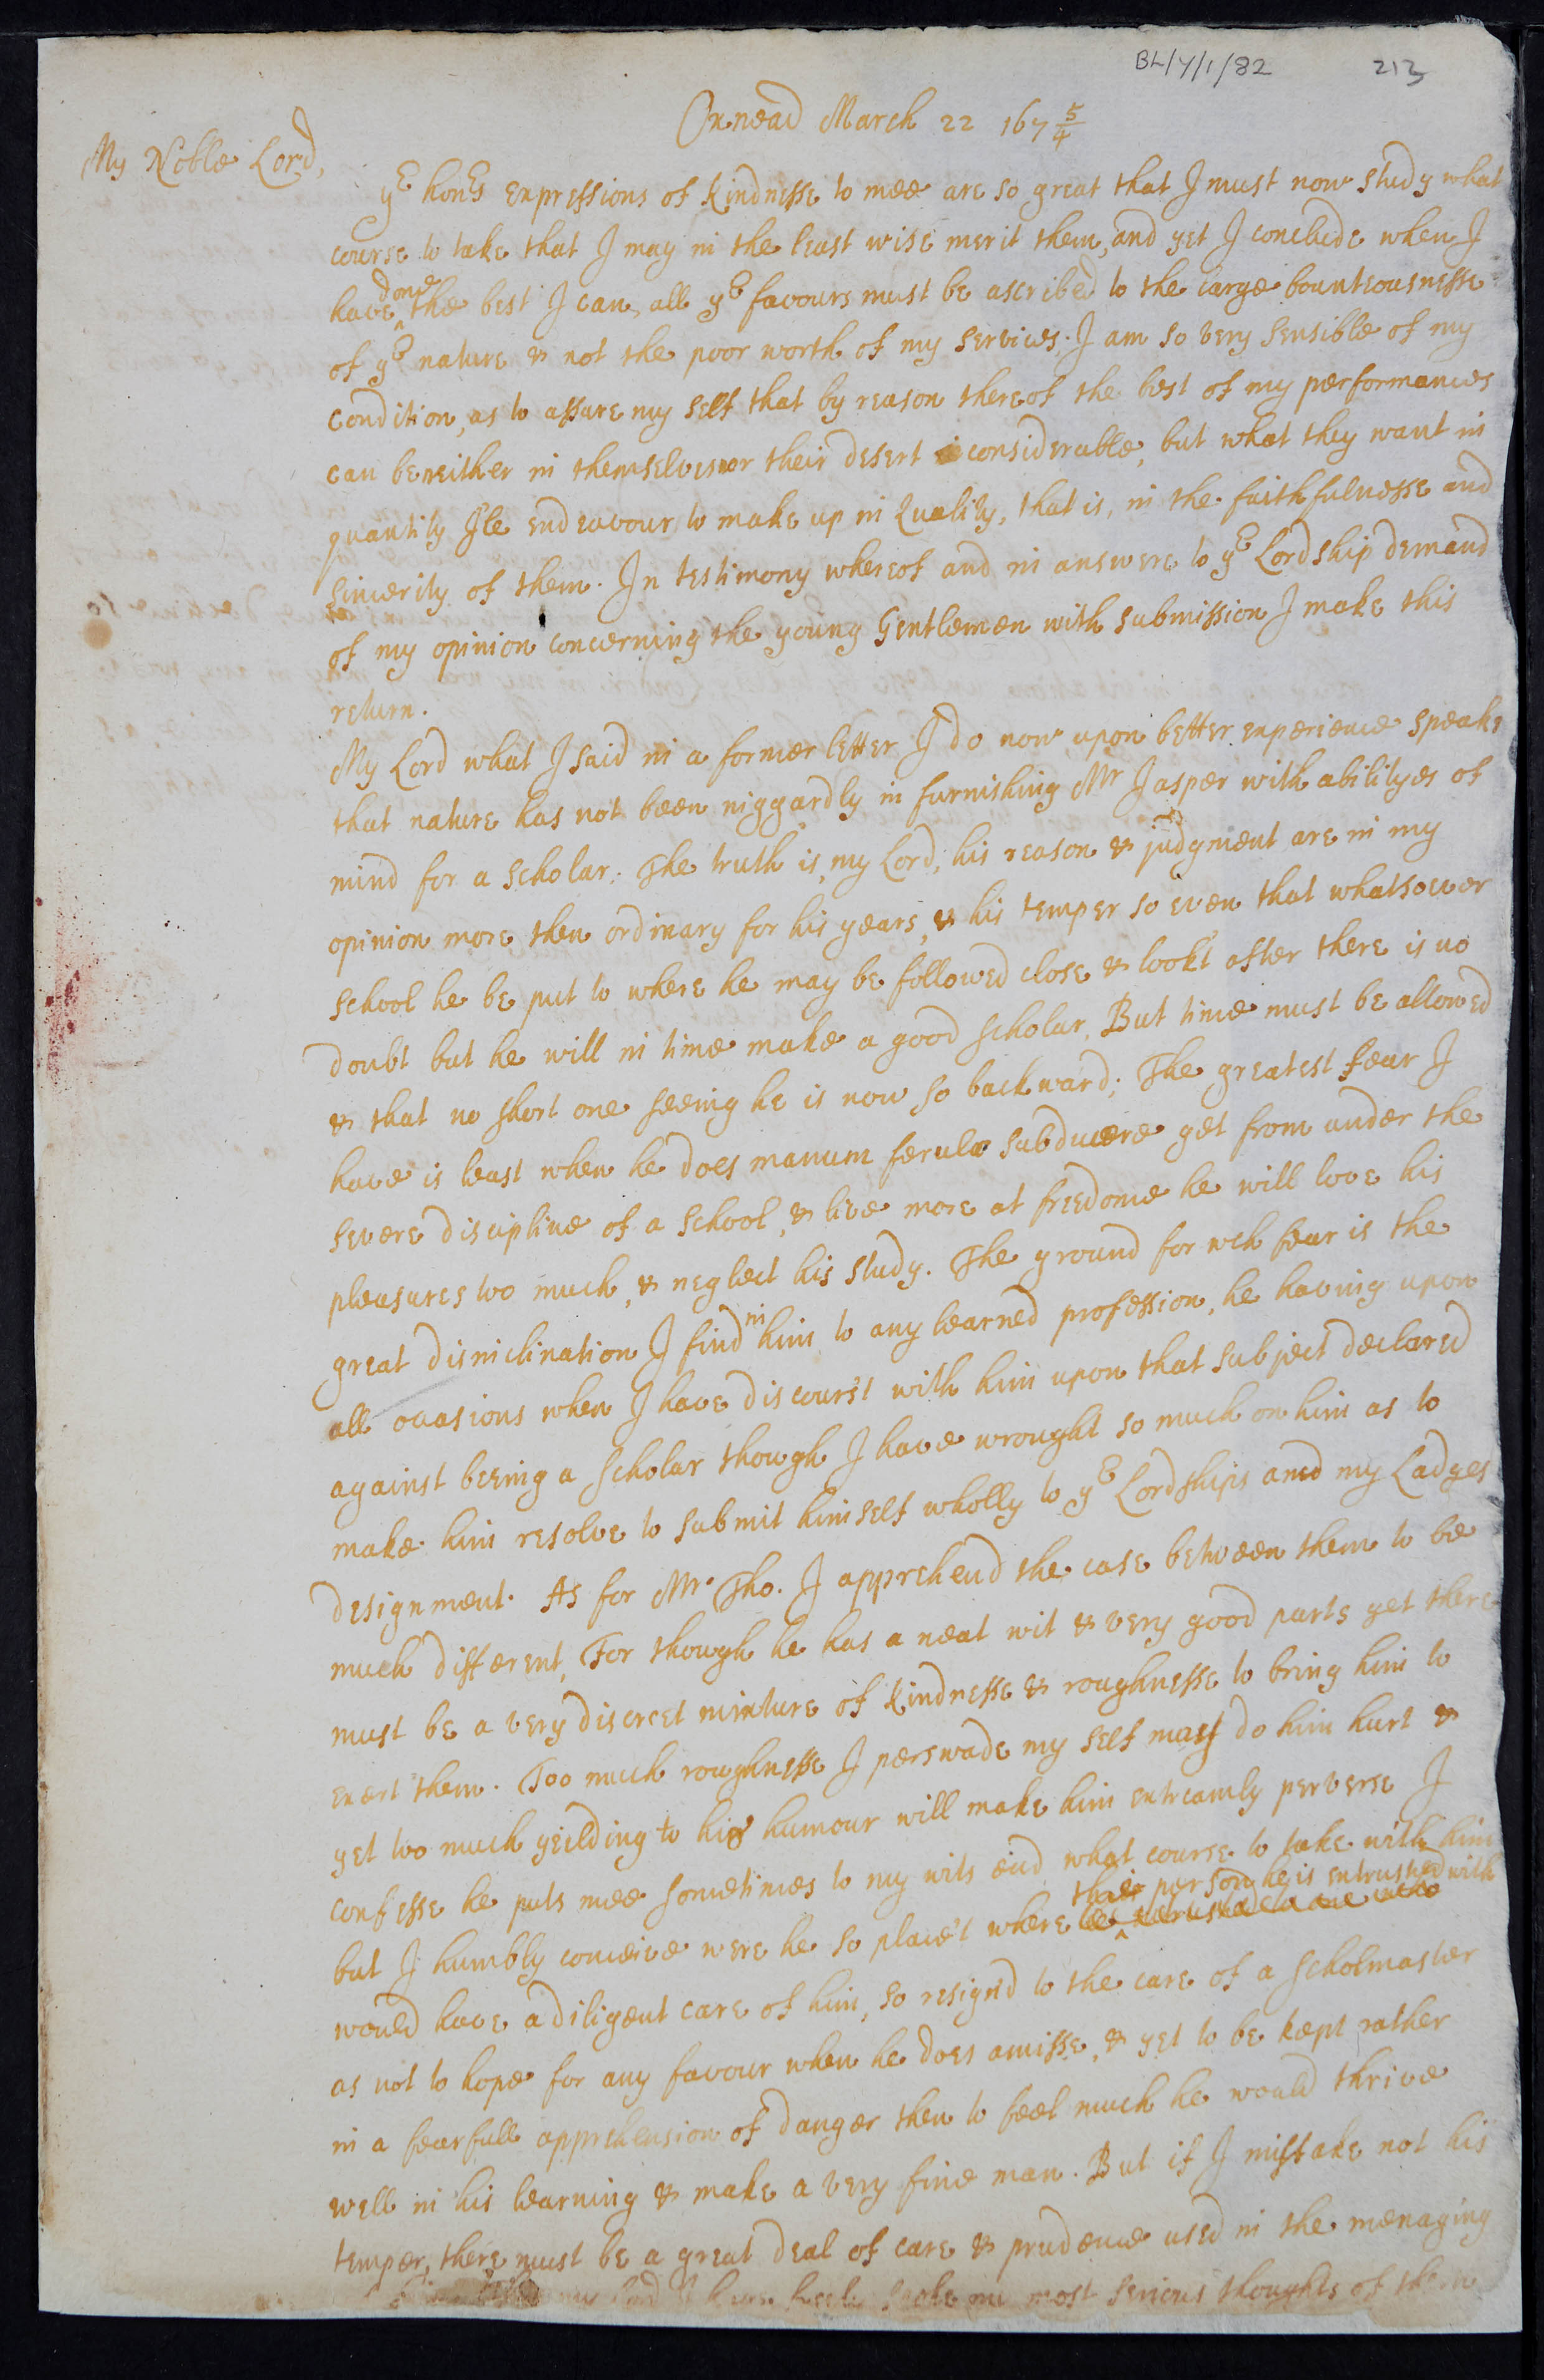 BL/Y/1/82 213
Oxnead March 22 167 5/4
My Noble Lord,
yr honrs expressions of kindnesse to mee are so great that I must now study what
course to take that I may in the least wise merit them, and yet I conclude when I
have done the best I can, all yr favours must be ascribed to the large bounteousnesse
of yr nature & not the poor worth of my services; I am so very sensible of my
condition, as to assure my self that by reason thereof the best of my performances
can be neither in themselves nor their desert considerable, but what they want in
quantity Ile endeavour to make up in Quality, that is, in the faithfulnesse and
sincerity of them. In testimony whereof and in answere to yr Lordship demand
of my opinion concerning the young Gentlemen with submission I make this
return.
My Lord what I said in a former letter I do now upon better experience speake
that nature has not been niggardly in furnishing Mr Jasper with abilityes of
mind for a scholar; The truth is, my Lord, his reason & judgment are in my
opinion more then ordinary for his years, & his temper so even that whatsoever
school he be put to where he may be followed close & look't after there is no
doubt but he will in time make a good scholar. But time must be allowed
& that no short one seeing he is now so backward; The greatest fear I
have is least when he does manum ferulæ subducere get from under the
severe discipline of a school, & live more at freedome he will love his
pleasures too much, & neglect his study. The ground for wch fear is the
great disinclination I find in him to any learned profession, he having upon
all ocasions when I have discourst with him upon that subject declared
against beeing a scholar though I have wrought so much on him as to
make him resolve to submit himself wholly to yr Lordships and my Ladyes
designment. As for Mr Tho. I apprehend the case between them to be
much different, For though he has a neat wit & very good parts yet there
must be a very discreet mixture of kindnesse & roughnesse to bring him to
exert them. Too much roughnesse I perswade my self may do him hurt &
yet too much yeilding to his humour will make him extreamly perverse I
confesse he puts mee sometimes to my wits end what course to take with him
but I humbly conceive were he so plac't where the person he is entrusted with
would have a diligent care of him, so resign'd to the care of a scholmaster
as not to hope for any favour when he does amisse, & yet to be kept rather
in a fearfull apprehension of danger then to feel much he would thrive
well in his learning & make a very fine man. But if I mistake not his
temper, there must be a great deal of care & prudence used in the menaging
my Lord I have most serious thoughts of them